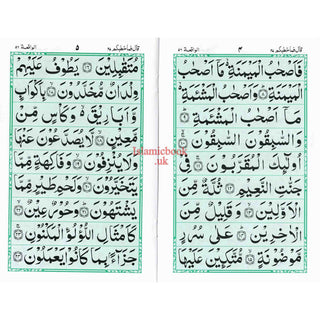 الواقعة ٥٦
٤
قال فما خطبكم ٢٧
فَاَصْحٰبُ الْمَيْمَنَةِ ۙ مَاۤ اَصْحٰبُ
الْمَيْمَنَةِ ۞ وَاَصْحٰبُ الْمَشْـَٔمَةِ ۙ
مَاۤ اَصْحٰبُ الْمَشْـَٔمَةِ ۞
وَالسّٰبِقُوْنَ السّٰبِقُوْنَ ۞
اُولٰٓئِكَ الْمُقَرَّبُوْنَ ۞ فِيْ
جَنّٰتِ النَّعِيْمِ ۞ ثُلَّةٌ مِّنَ
الْاَوَّلِيْنَ ۞ وَقَلِيْلٌ مِّنَ
الْاٰخِرِيْنَ ۞ عَلٰى سُرُرٍ
مَّوْضُوْنَةٍ ۞ مُّتَّكِـِٕيْنَ عَلَيْهَا
الواقعة ٥٦
٥
قال فما خطبكم ٢٧
مُتَقٰبِلِيْنَ ۞ يَطُوْفُ عَلَيْهِمْ
وِلْدَانٌ مُّخَلَّدُوْنَ ۞ بِاَكْوَابٍ
وَّاَبَارِيْقَ ۙ وَكَاْسٍ مِّنْ
مَّعِيْنٍ ۞ لَّا يُصَدَّعُوْنَ عَنْهَا
وَلَا يُنْزِفُوْنَ ۞ وَفَاكِهَةٍ مِّمَّا
يَتَخَيَّرُوْنَ ۞ وَلَحْمِ طَيْرٍ مِّمَّا
يَشْتَهُوْنَ ۞ وَحُوْرٌ عِيْنٌ ۞
كَاَمْثَالِ اللُّؤْلُؤِ الْمَكْنُوْنِ ۞
جَزَآءًۢ بِمَا كَانُوْا يَعْمَلُوْنَ ۞
Islamicbook
.uk